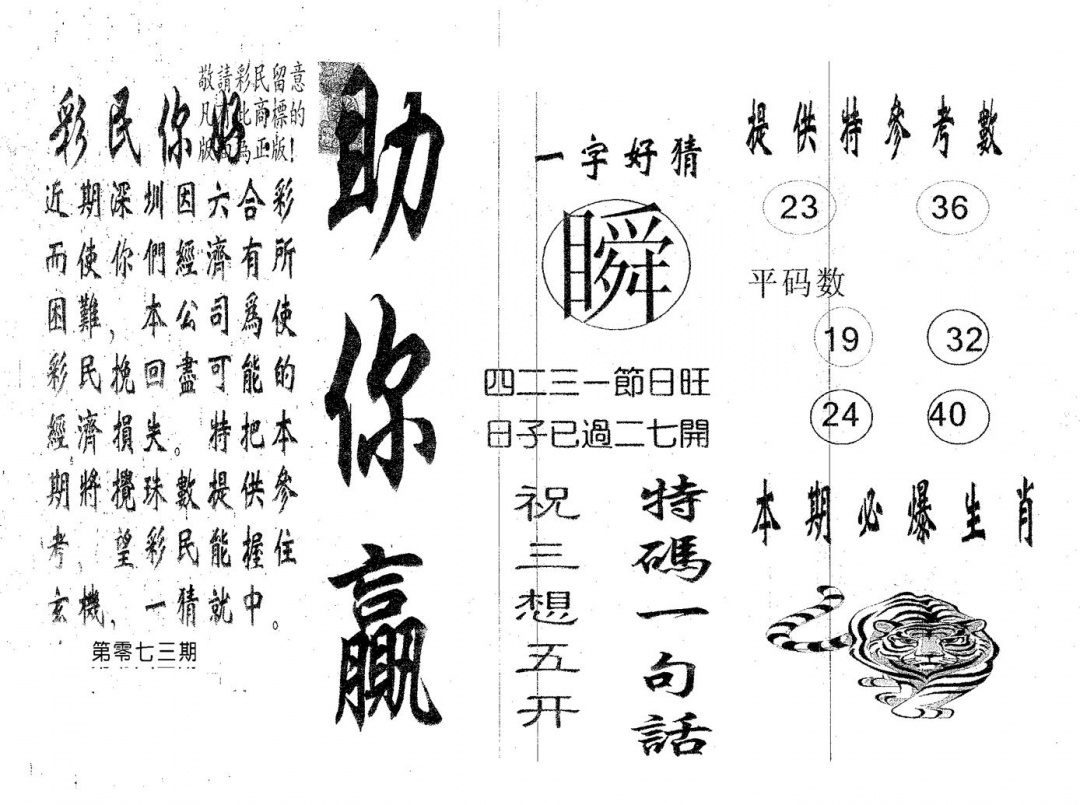 敬請彩民留意
凡 此商標的
版 為正版!
彩民你好
近期深圳因六合彩
而使你們經濟有所
困難,本公司爲使
彩民挽回盡可能的
經濟損失。特把本
期將攪珠數提供參
考,望彩民能握住
玄機,一猜就中。
第零七三期
助你贏
一字好猜
瞬
四二三一節日旺
日子已過二七開
特碼一句話
祝三想五开
提供特參考數
23 36
平码数
19 32
24 40
本期必爆生肖